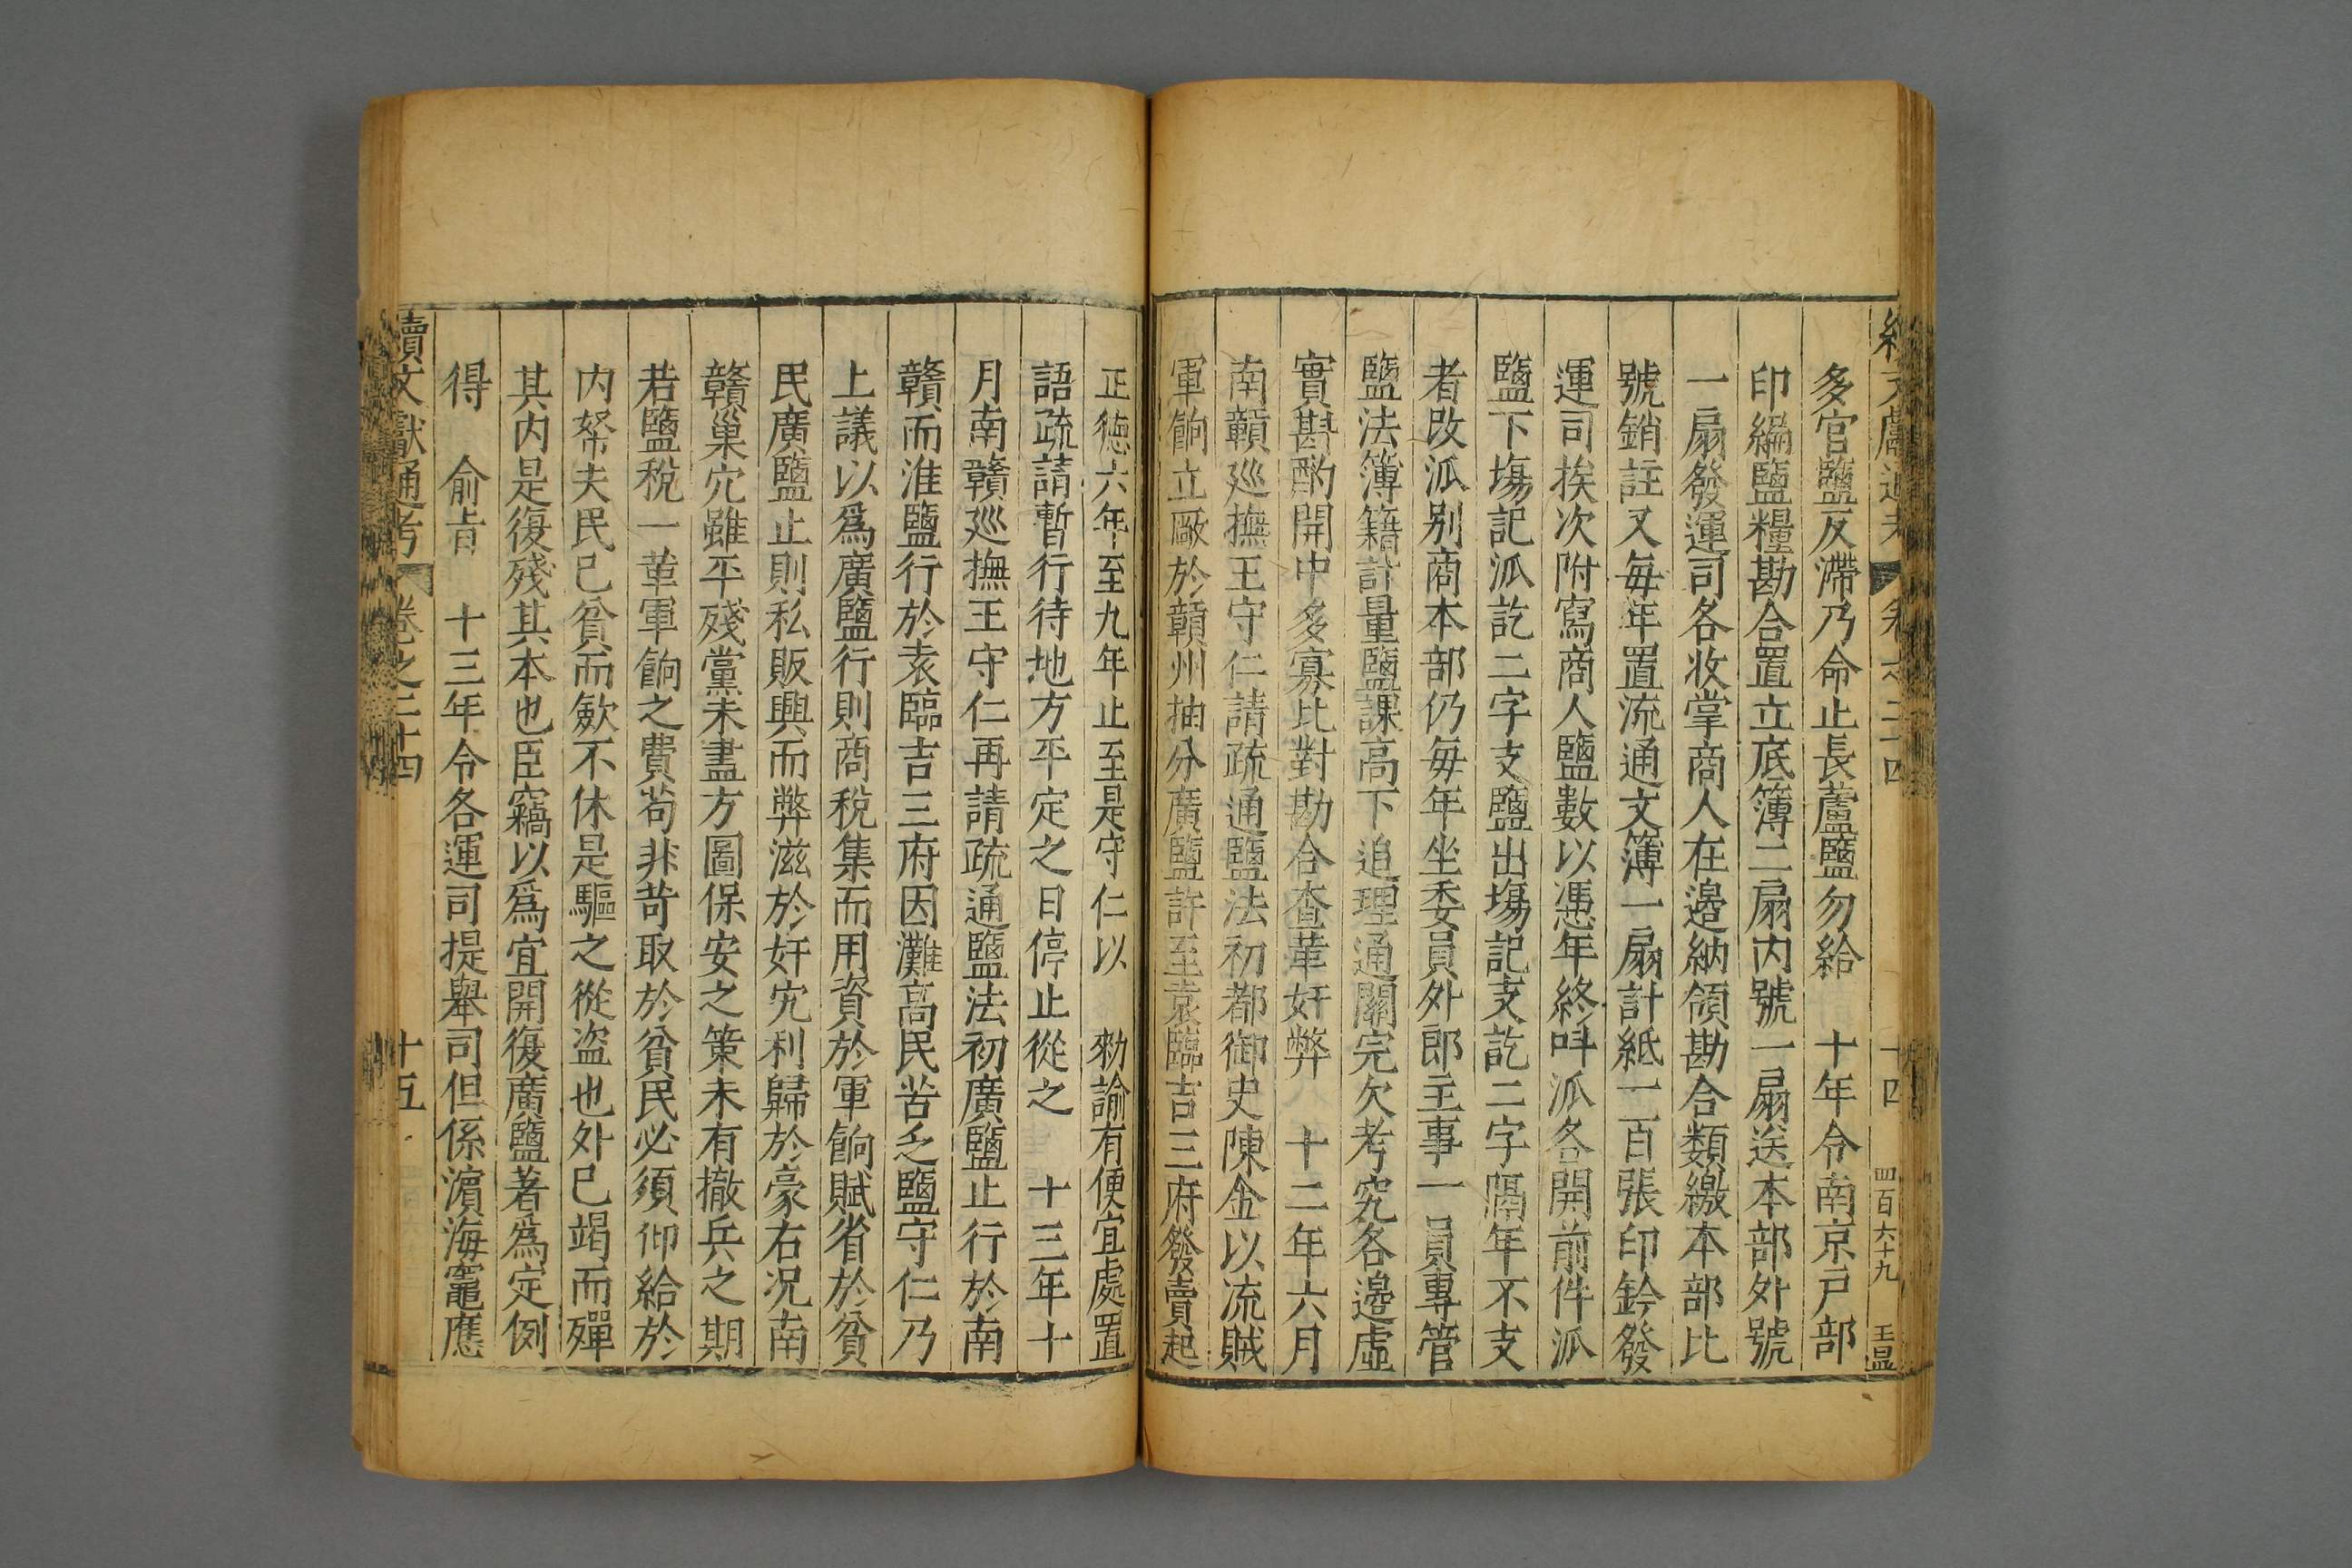 續文獻通考 卷之二十四 十四 四百六十九 王昷
多官鹽反滯乃命止長蘆鹽勿給 十年令南京戸部
印編鹽糧勘合置立底簿二扇内號一扇送本部外號
一扇發運司各收掌商人在邉納領勘合類繳本部比
號銷註又每年置流通文簿一扇計紙一百張印鈐發
運司挨次附寫商人鹽數以憑年終呌派各開前件派
鹽下塲記派訖二字支鹽出塲記支訖二字隔年不支
者改派别商本部仍每年坐委員外郎主事一員專管
鹽法簿籍計量鹽課高下追理通關完欠考究各邉虛
實斟酌開中多寡比對勘合查革奸弊 十二年六月
南贛廵撫王守仁請疏通鹽法初都御史陳金以流賊
軍餉立厰於贛州抽分廣鹽許至袁臨吉三府發賣起
正德六年至九年止至是守仁以 勑諭有便宜處置
語疏請暫行待地方平定之日停止從之 十三年十
月南贛廵撫王守仁再請疏通鹽法初廣鹽止行於南
贛而淮鹽行於袁臨吉三府因灘高民苦乏鹽守仁乃
上議以爲廣鹽行則商稅集而用資於軍餉賦省於貧
民廣鹽止則私販興而弊滋於奸宄利歸於豪右况南
贛巢穴雖平殘黨未盡方圖保安之策未有撤兵之期
若鹽稅一革軍餉之費苟非苛取於貧民必須仰給於
内帑夫民已貧而歛不休是驅之從盗也外已竭而殫
其内是復殘其本也臣竊以爲宜開復廣鹽著爲定例
得 俞㫖 十三年令各運司提舉司但係濵海竈應
續文獻通考 卷之二十四 十五